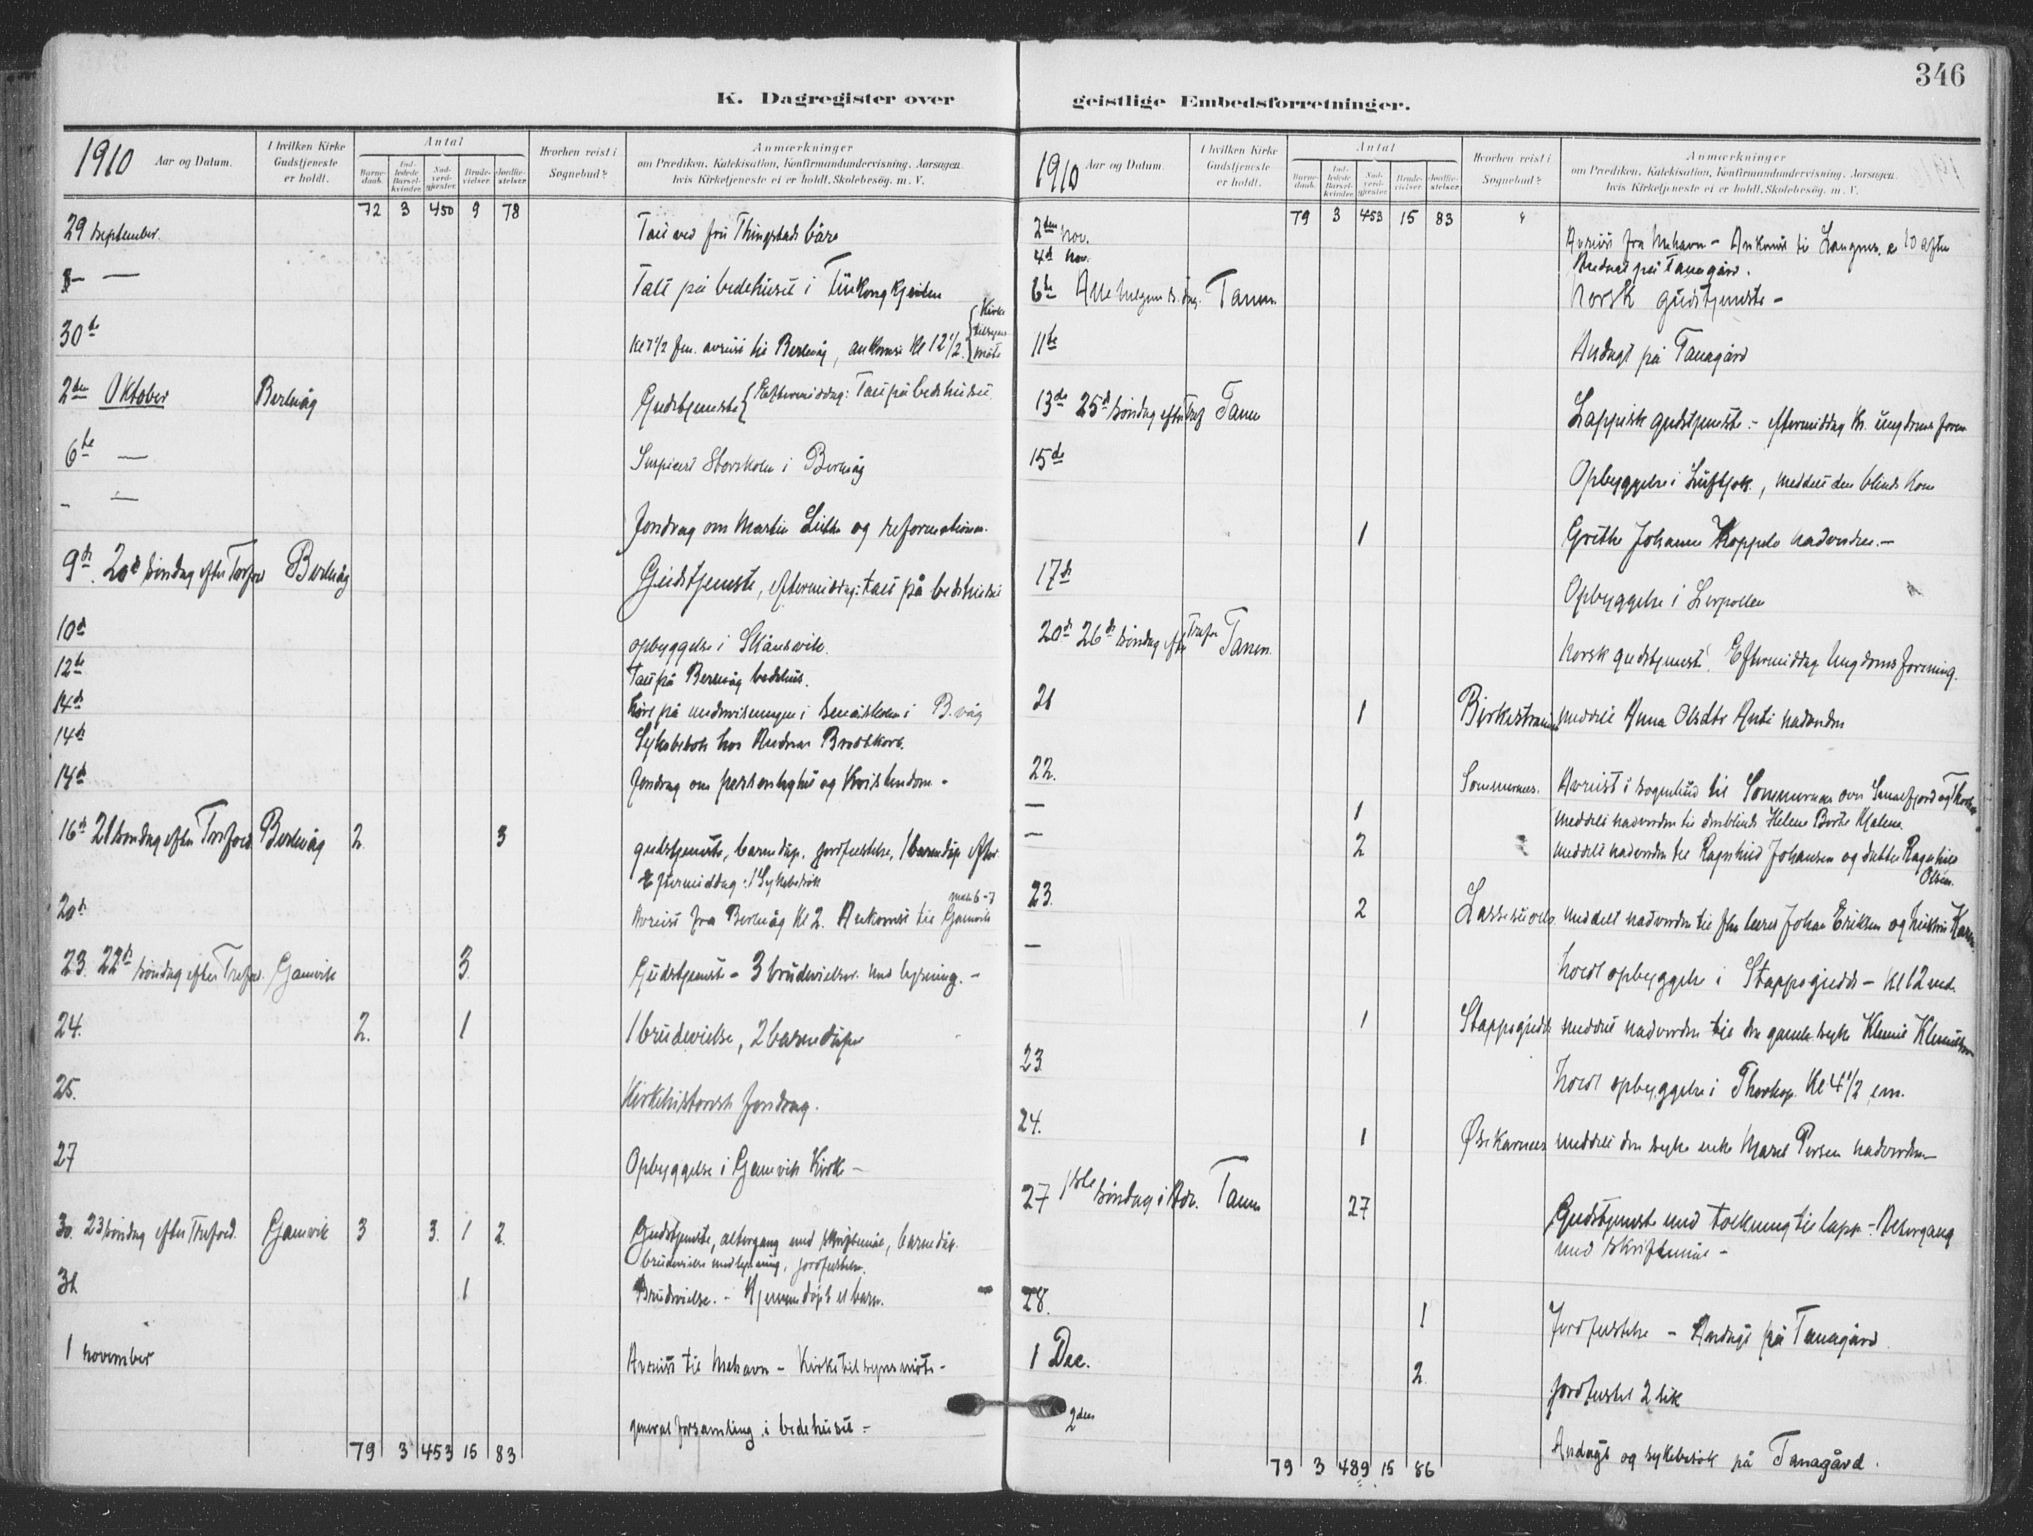 346
K. Dagregister over
geistlige Embedsforretninger.
1910 Aar og Datum. I hvilken Kirke Gudstjeneste er holdt. Antal Barnedaab. Indledede Barselkvinder. Nadverdgjæster. Brudevielser. Jordfæstelser. Hvorhen reist i Sognebud? Anmærkninger om Prædiken, Katekisation, Konfirmandundervisning, Aarsagen, hvis Kirketjeneste ei er holdt, Skolebesøg, m. V.
72 3 450 9 78
29 september. Talt ved fru Thingstads båre
— Talt på bedehuset i
30te Kl 7 1/2 fm. avreist til Berlevåg, ankomst Kl 12 1/2. {Kirketilsynsmøte
2den Oktober Berlevåg Gudstjeneste {Eftermiddag: Talt på bedehuset.
6te — Inspicert Storskolen i Berlevåg
- — Foredrag om Martin Luther og reformationen.
9de. 20de søndag efter Trefold Berlevåg Gudstjeneste, eftermiddag: talt på bedehuset
10de opbyggelse i Skånsvik.
12te Talt på Berlevåg bedehus.
14de hørt på undervisningen i småskolen i B.våg
14de Sykebesøk hos Andreas Brodtkorb.
14de Foredrag om personlighet og Kristendom -
16de 21 søndag efter Trefold Berlevåg 2. 3 gudstjeneste, barnedåp, jordfæstelse, 1 barnedåp efter
Eftermiddag: 1 Sykebesøk
20de Avreist fra Berlevåg Kl 2. Ankomst til Gamvik mell 6-7
23. 22de søndag efter Trefol. Gamvik 3. Gudstjeneste - 3 brudevielser med lysning. -
24. 2. 1 1 brudevielse, 2 barnedåper
25. Kirkehistorisk foredrag.
27 Opbyggelse i Gamvik Kirke -
30. 23 søndag efter Trefold. Gamvik 3 3. 1 2. Gudstjeneste, altergang med skriftemål, barnedåp.
brudevielse med lysning, jordfæstelse.
31 1 Brudevielse. - Hjemmedøpt et barn.
1 november Avreist til Mehavn - Kirketilsynsmøte -
generalforsamling i bedehuset -
79 3 453 15 83
1910 Aar og Datum. I hvilken Kirke Gudstjeneste er holdt. Antal Barnedaab. Indledede Barselkvinder. Nadverdgjæster. Brudevielser. Jordfæstelser. Hvorhen reist i Sognebud? Anmærkninger om Prædiken, Katekisation, Konfirmandundervisning, Aarsagen, hvis Kirketjeneste ei er holdt, Skolebesøg, m. V.
79 3 453 15 83
2den nov. Avreist fra Mehavn - Ankomst til Langnes. Kl 10 aften
4de nov. Andagt på Tanagård.
6te Allehelgens dag. Tanen Norsk gudstjeneste -
11te Andagt på Tanagård
13de 25de søndag efter Tref Tanen Lappisk gudstjeneste. - eftermiddag Kr. ungdomsforen
15de Opbyggelse i Luftjok., meddelt den blinde Kone
1 Grethe Johanne Koppelo nadverden. -
17de Opbyggelse i Leirpollen
20de 26de søndag efter Trefo Tanen. Norsk gudstjeneste. Eftermiddag Ungdomsforening.
21 1 Birkestrand meddelt Anna Olsdtr Anti nadverden
22. Sommernes. Avreist i sognebud til Sommernæs over Smalfjord og Thorkop
— 1 meddelt nadverden til den blinde Helene Berte Malene
— 2 meddelt nadverden til Ragnhild Johansen og datter Ragnhild Olsen.
23. 2 meddelt nadverden til Johan Eriksen og hustru Karen
— holdt opbyggelse i Stappogiedde - Kl 12 md.
1 Stappogiedde meddelt nadverden til den gamle syke Klemet Klemetsen
23 holdt opbyggelse i Thorkop Kl 4 1/2 em.
24. 1 Østkarnes meddelt den syke enke Maret Persen nadverden
27 1ste søndag i Adv. Tanen 27 Gudstjeneste med tolkning til lapp - Altergang
med skriftemål -
28. 1 Jordfæstelse - Andagt på Tanagård.
1 Dec. 2. jordfæstet 2 lik
2den Andagt og sykebesøk på Tanagård.
79 3 489 15 86